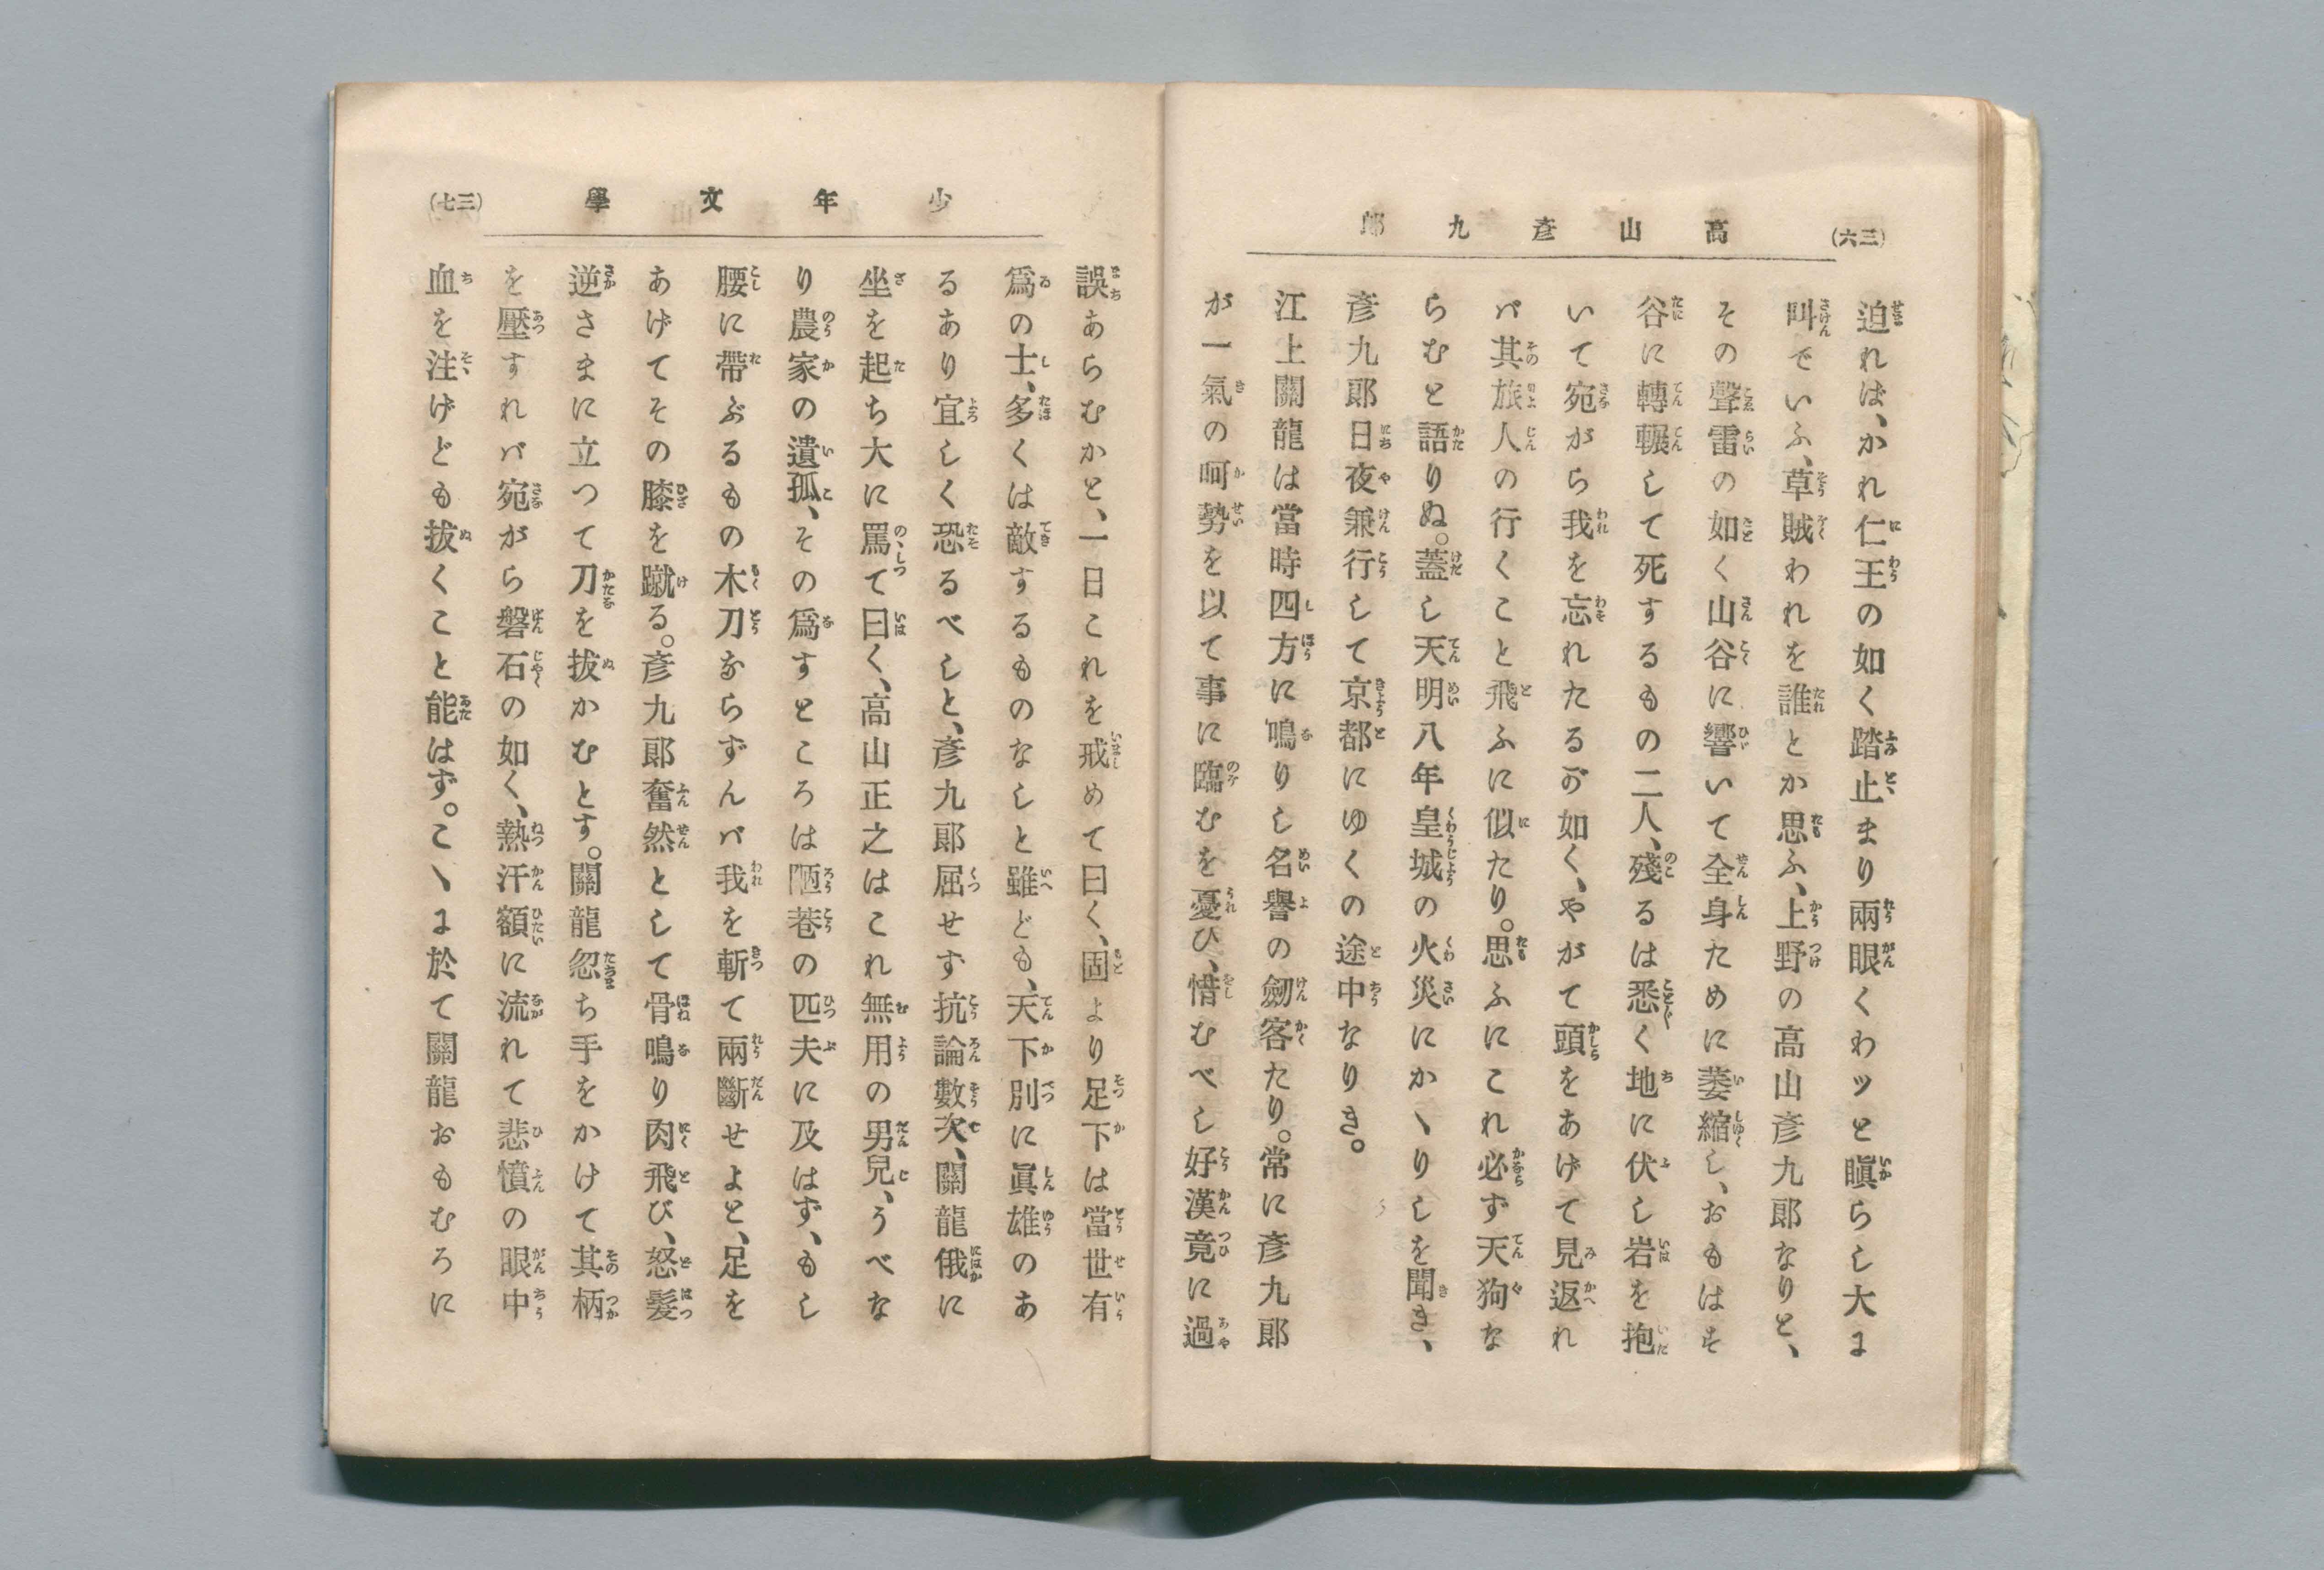 (三六)
高山彥九郎
迫れば、かれ仁王の如く踏止まり兩眼くわッと瞋らし大に
叫でいふ、草賊われを誰とか思ふ、上野の高山彥九郎なりと、
その聲雷の如く山谷に響いて全身ために萎縮し、おもはず
谷に轉輾して死するもの二人、殘るは悉く地に伏し岩を抱
いて宛がら我を忘れたるが如く、やがて頭をあげて見返れ
バ其旅人の行くこと飛ふに似たり。思ふにこれ必ず天狗な
らむと語りぬ。蓋し天明八年皇城の火災にかゝりしを聞き、
彥九郎日夜兼行して京都にゆくの途中なりき。
江上關龍は當時四方に鳴りし名譽の劒客たり。常に彥九郎
が一氣の呵勢を以て事に臨むを憂ひ、惜むべし好漢竟に過
少年文學
(三七)
誤あらむかと、一日これを戒めて曰く、固より足下は當世有
爲の士、多くは敵するものなしと雖ども、天下別に眞雄のあ
るあり宜しく恐るべしと、彥九郎屈せす抗論數次、關龍俄に
坐を起ち大に罵て曰く、高山正之はこれ無用の男兒、うべな
り農家の遺孤、その爲すところは陋巷の匹夫に及はず、もし
腰に帶ぶるもの木刀ならずんバ我を斬て兩斷せよと、足を
あげてその膝を蹴る。彥九郎奮然として骨鳴り肉飛び、怒髮
逆さまに立つて刀を拔かむとす。關龍忽ち手をかけて其柄
を壓すれバ宛がら磐石の如く、熱汗額に流れて悲憤の眼中
血を注げども拔くこと能はず。こゝに於て關龍おもむろに